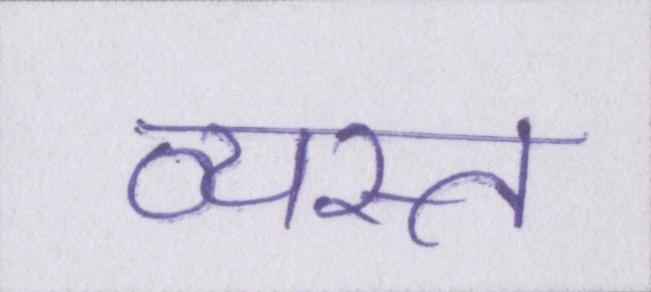 व्यस्त